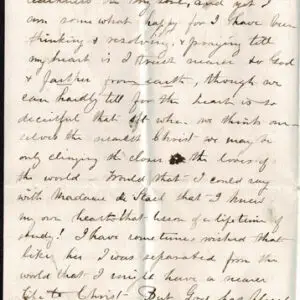 and yet I
am somewhat happy for I have been
thinking & resolving, & praying till
my heart is I trust nearer to God
& farther from earth, though we
can hardly tell for the heart is so
deceitful that oft when we think our-
selves the nearest Christ we may be
only clinging the closer to the loves of
the world. Would that I could say
with Madame de Stael that I knew
my own heart that lesson of a lifetime of
study! I have sometimes wished that
like her I was separated from the
world that I might have a nearer
to Christ. But God has